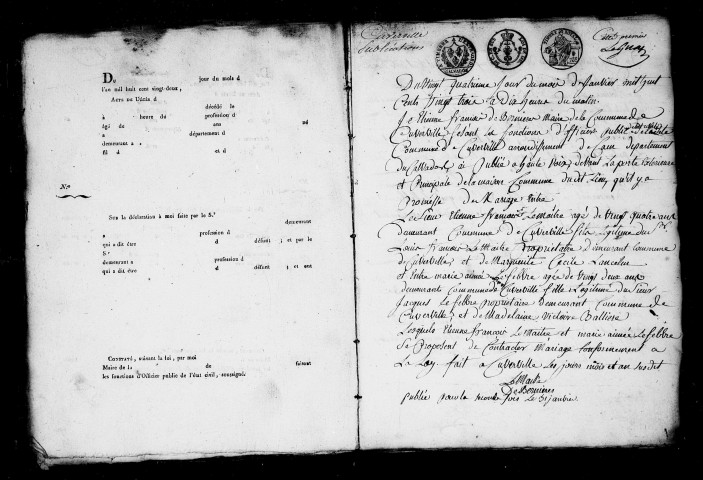 DU jour du mois d
l'an mil huit cent vingt-deux,
ACTE DE DÉCÈS d
décédé le
à heure du profession d
âgé de ans né
à département d
demeurant a
fil d et d
N.o
Sur la déclaration à moi faite par le S.r
demeurant
a profession d
qui a dit être d défunt ; et par le
S.r
demeurant a profession d
qui a dit être d défunt ; et ont
CONSTATÉ, suivant la loi, par moi
Maire de la de faisant
les fonctions d'Officier public de l'état civil, soussigné.
Cuverville
Publications
Du Vingt quatrieme jour du mois de Janvier mil huit
Cents Vingt trois à Dix heures du matin.
Je Etienne françois de Bernieres maire de la Commune de
Cuverville faisant les fonctions d'officier public de l'état civil de la
Commune de Cuverville arrondissement de Caen département
du Calvados, ai Publié a haute Voix, devant la porte
et Principale de la maison Commune dudit Lieu, qu'il y a
Promesse de Mariage Entre
Le Sieur Etienne françois Lemaitre agé de Vingt quatre ans
demeurant Commune de Cuverville fils Légitime du Sr.
Louis francois Lemaitre Proprietaire demeurant Commune
de Cuverville, et de Marguerite Cecile Lancelin
et Entre marie aimée Lefebvre agée de Vingt deux ans
demeurant Commune de Cuverville fille Légitime du Sieur
Jacques Lefebvre proprietaire Demeurant Commune de
Cuverville, et de Madelaine Victoire
Lesquels Etienne francois Lemaitre et marie aimée Lefebvre
Se Proposent de Contracter Mariage Conformement a
La Loy fait a Cuverville les jours mois et an susdit
Le Maire
De Bernieres
publié pour la seconde fois le 31 janvier